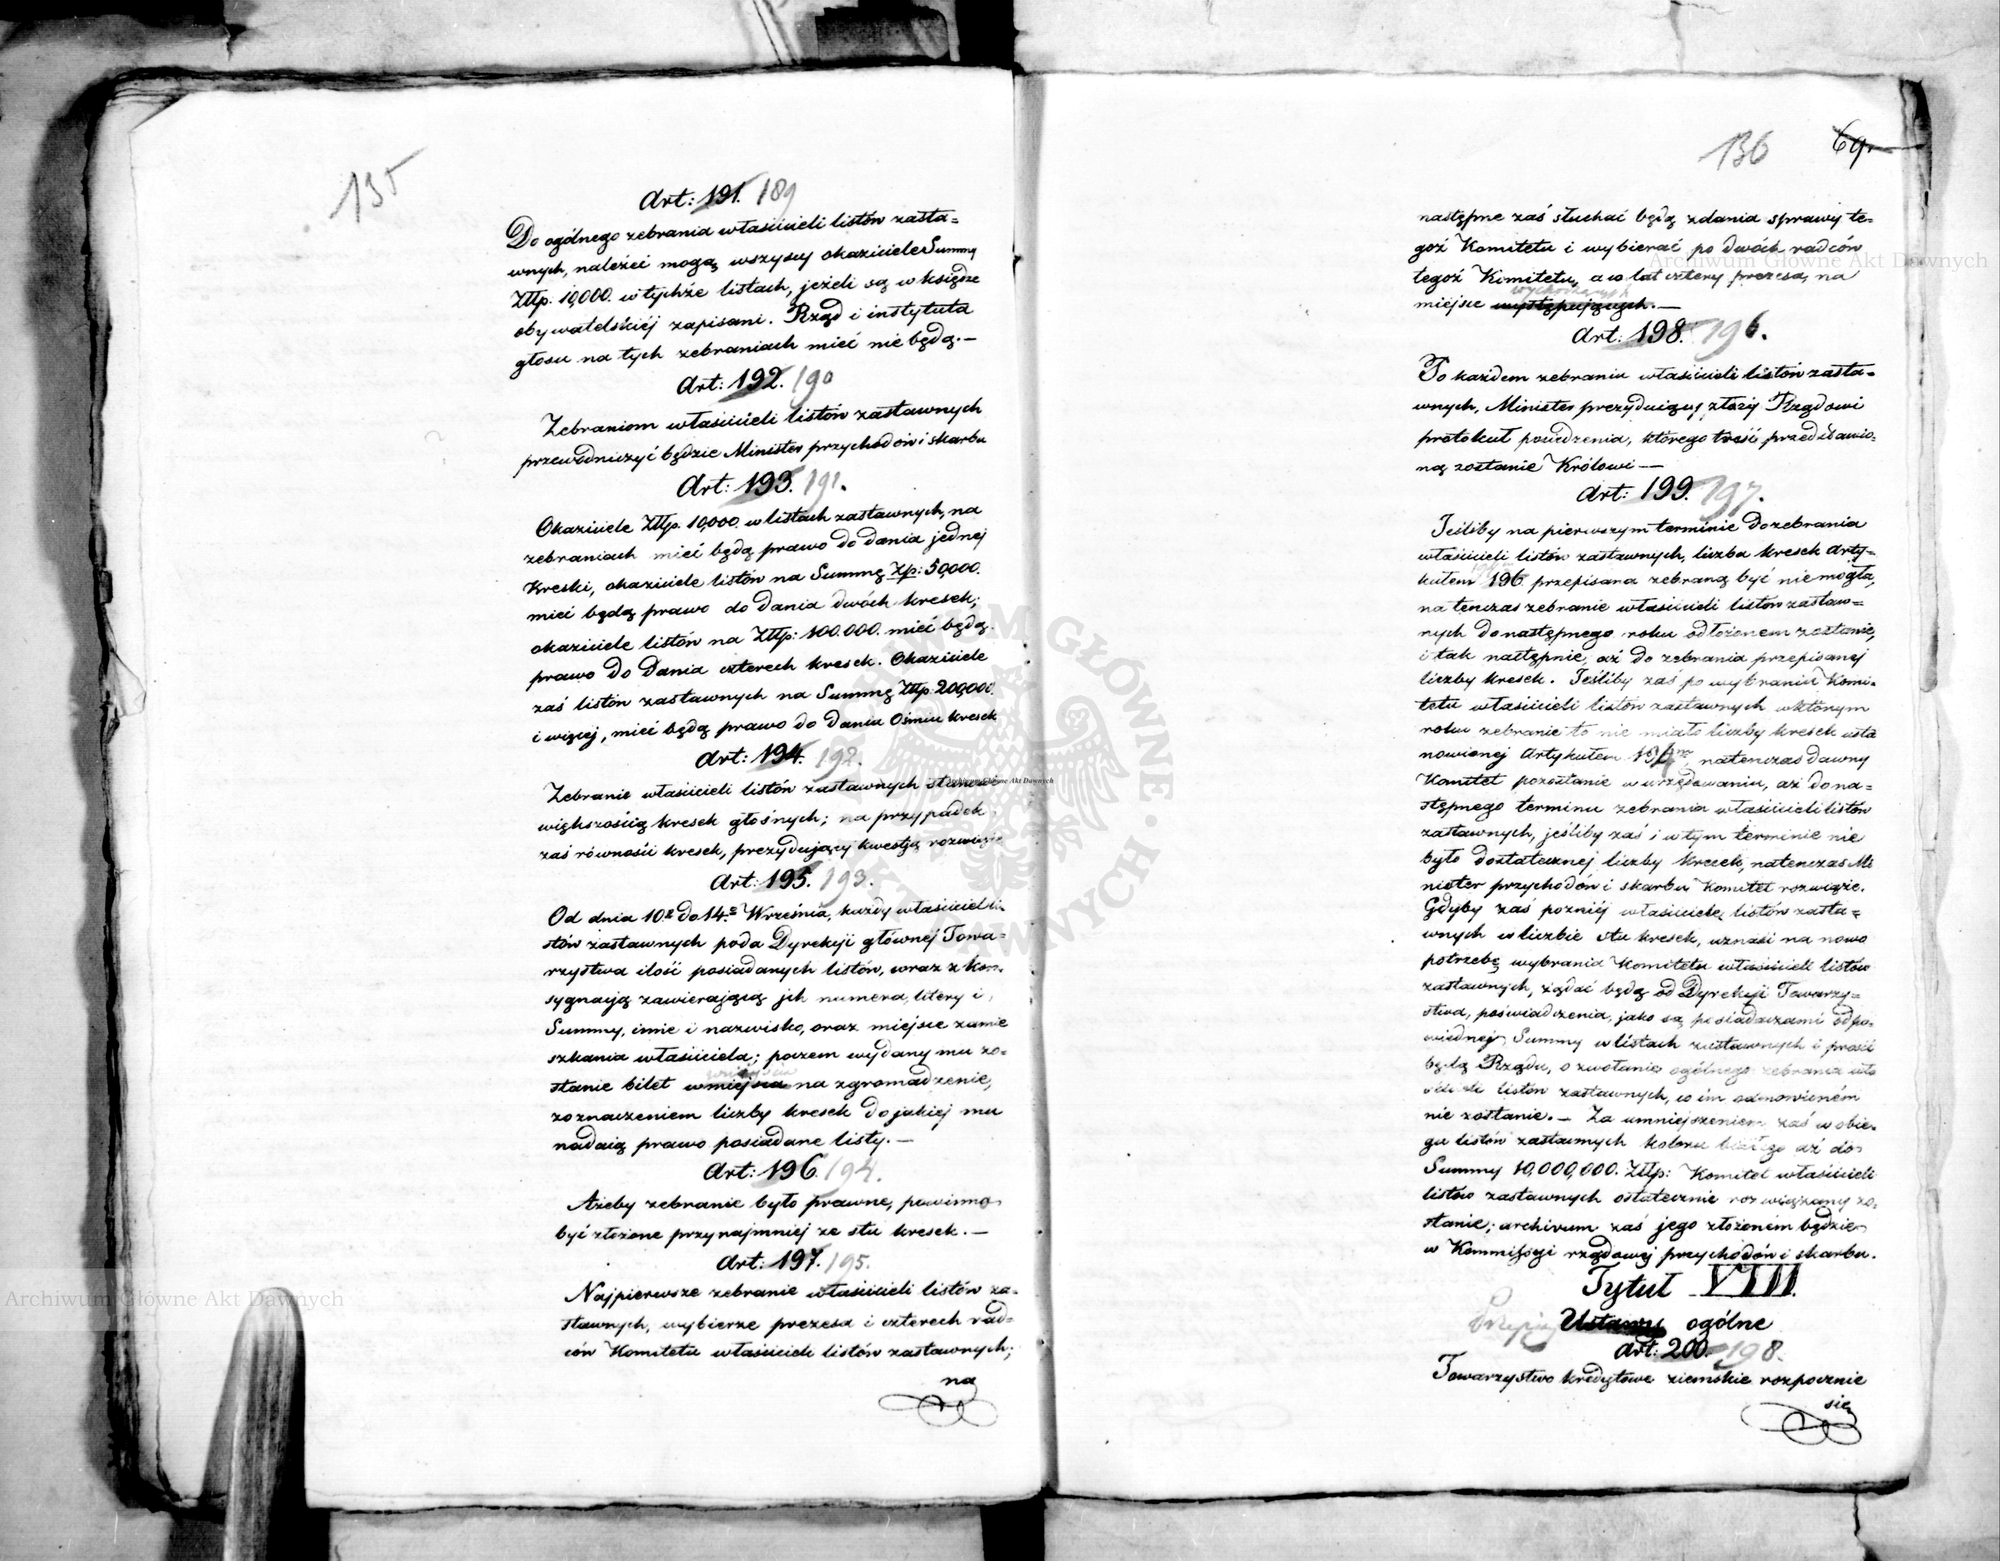 135
Art: 191. 189
Do ogólnego zebrania właścicieli listów zasta=
wnych, należeć mogą wszyscy okaziciele Summy
Złłp. 10,000. w tychże listach, jeżeli są w księdze
obywatelskiéj zapisani. Rząd i instytuta
głosu na tych zebraniach mieć nie będą.—
Art: 192. 190
Zebraniom właścicieli listów zastawnych
przewodniczyć będzie Minister przychodów i skarbu
Art: 193. 191.
Okaziciele Złłp. 10,000. w listach zastawnych, na
zebraniach mieć będą prawo do dania jednej
Kreski, okaziciele listów na Summę Złp: 50,000.
mieć będą prawo do dania dwóch kresek;
okaziciele listów na Złłp: 100.000. mieć będą
prawo do dania czterech kresek. Okaziciele
zaś listów zastawnych na Summę Złłp. 200,000.
i więcej, mieć będą prawo do dania ośmiu kresek
Art: 194. 192.
Zebranie właścicieli listów zastawnych stanowi
większością kresek głośnych; na przypadek
zaś równości kresek, prezydujący kwestją rozwiąże
Art: 195. 193.
Od dnia 10.º do 14.º Września, każdy właściciel li=
stów zastawnych poda Dyrekcji głównej Towa=
rzystwa ilość posiadanych listów, wraz z kon=
sygnacją zawierającą jch numera, litery i
Summy, imie i nazwisko, oraz miejsce zamie
szkania właściciela; poczem wydany mu zo=
stanie bilet wmiejscia na zgromadzenie,
z oznaczeniem liczby kresek do jakiej mu
nadaią prawo posiadane listy.—
Art: 196. 194.
Ażeby zebranie było prawne, powinno
być złożone przynajmniej ze stu kresek.—
Art: 197. 195.
Najpierwsze zebranie właścicieli listów za=
stawnych, wybierze prezesa i czterech rad=
ców Komitetu właścicieli listów zastawnych;
na
136 69
następne zaś słuchać będą zdania sprawy te=
goż Komitetu i wybierać po dwóch radców
tegoż Komitetu, a co lat cztery prezesa, na
wychodzących
miejsce występujących.—
Art: 198. 196.
Po każdem zebraniu właścicieli listów zasta=
wnych, Minister prezyduiący złoży Rządowi
protokuł posiedzenia, którego treść przedstawio=
ną zostanie Królowi—
Art: 199. 197.
Jeśliby na pierwszym terminie do zebrania
właścicieli listów zastawnych, liczba kresek arty=
kułem 196 przepisana zebraną być nie mogła,
na tenczas zebranie właścicieli listów zastaw=
nych do następnego roku odłożonem zostanie,
i tak następnie, aż do zebrania przepisanej
liczby kresek. Jeśliby zaś po wybraniu Komi=
tetu właścicieli listów zastawnych w którym
roku zebranie to nie miało liczby kresek usta
nowionej Artykułem natenczas dawny
Komitet pozostanie w urzędowaniu, aż do na=
stępnego terminu zebrania właścicieli listów
zastawnych, jeśliby zaś i w tym terminie nie
było dostatecznej liczby kresek, natenczas Mi
nister przychodów i skarbu Komitet rozwiąże.
Gdyby zaś pozniéj właściciele listów zasta=
wnych w liczbie stu kresek, uznali na nowo
potrzebę wybrania Komitetu właścicieli listów
zastawnych, żądać będą od Dyrekcji Towarzy=
stwa, poświadczenia, jako są posiadaczami odpo=
wiedniej Summy w listach zastawnych i prosić
będą Rządu, o zwołanie ogólnego zebrania wła
ścicieli listów zastawnych, co im odmowioném
nie zostanie.— Za umniejszeniem zaś w obie=
gu listów zastawnych koloru białego aż do
Summy 10,000,000. Złłp: Komitet właścicieli
listów zastawnych ostatecznie rozwiązany zo=
stanie; archivum zaś jego złożoném będzie
w Kommissyi rządowej przychodów i skarbu.
Tytuł VIII.
Przepisy Ustawy ogólne
Art: 200. 198.
Towarzystwo kredytowe ziemskie rozpocznie
się
Archiwum Główne Akt Dawnych
Archiwum Główne Akt Dawnych
Archiwum Główne Akt Dawnych